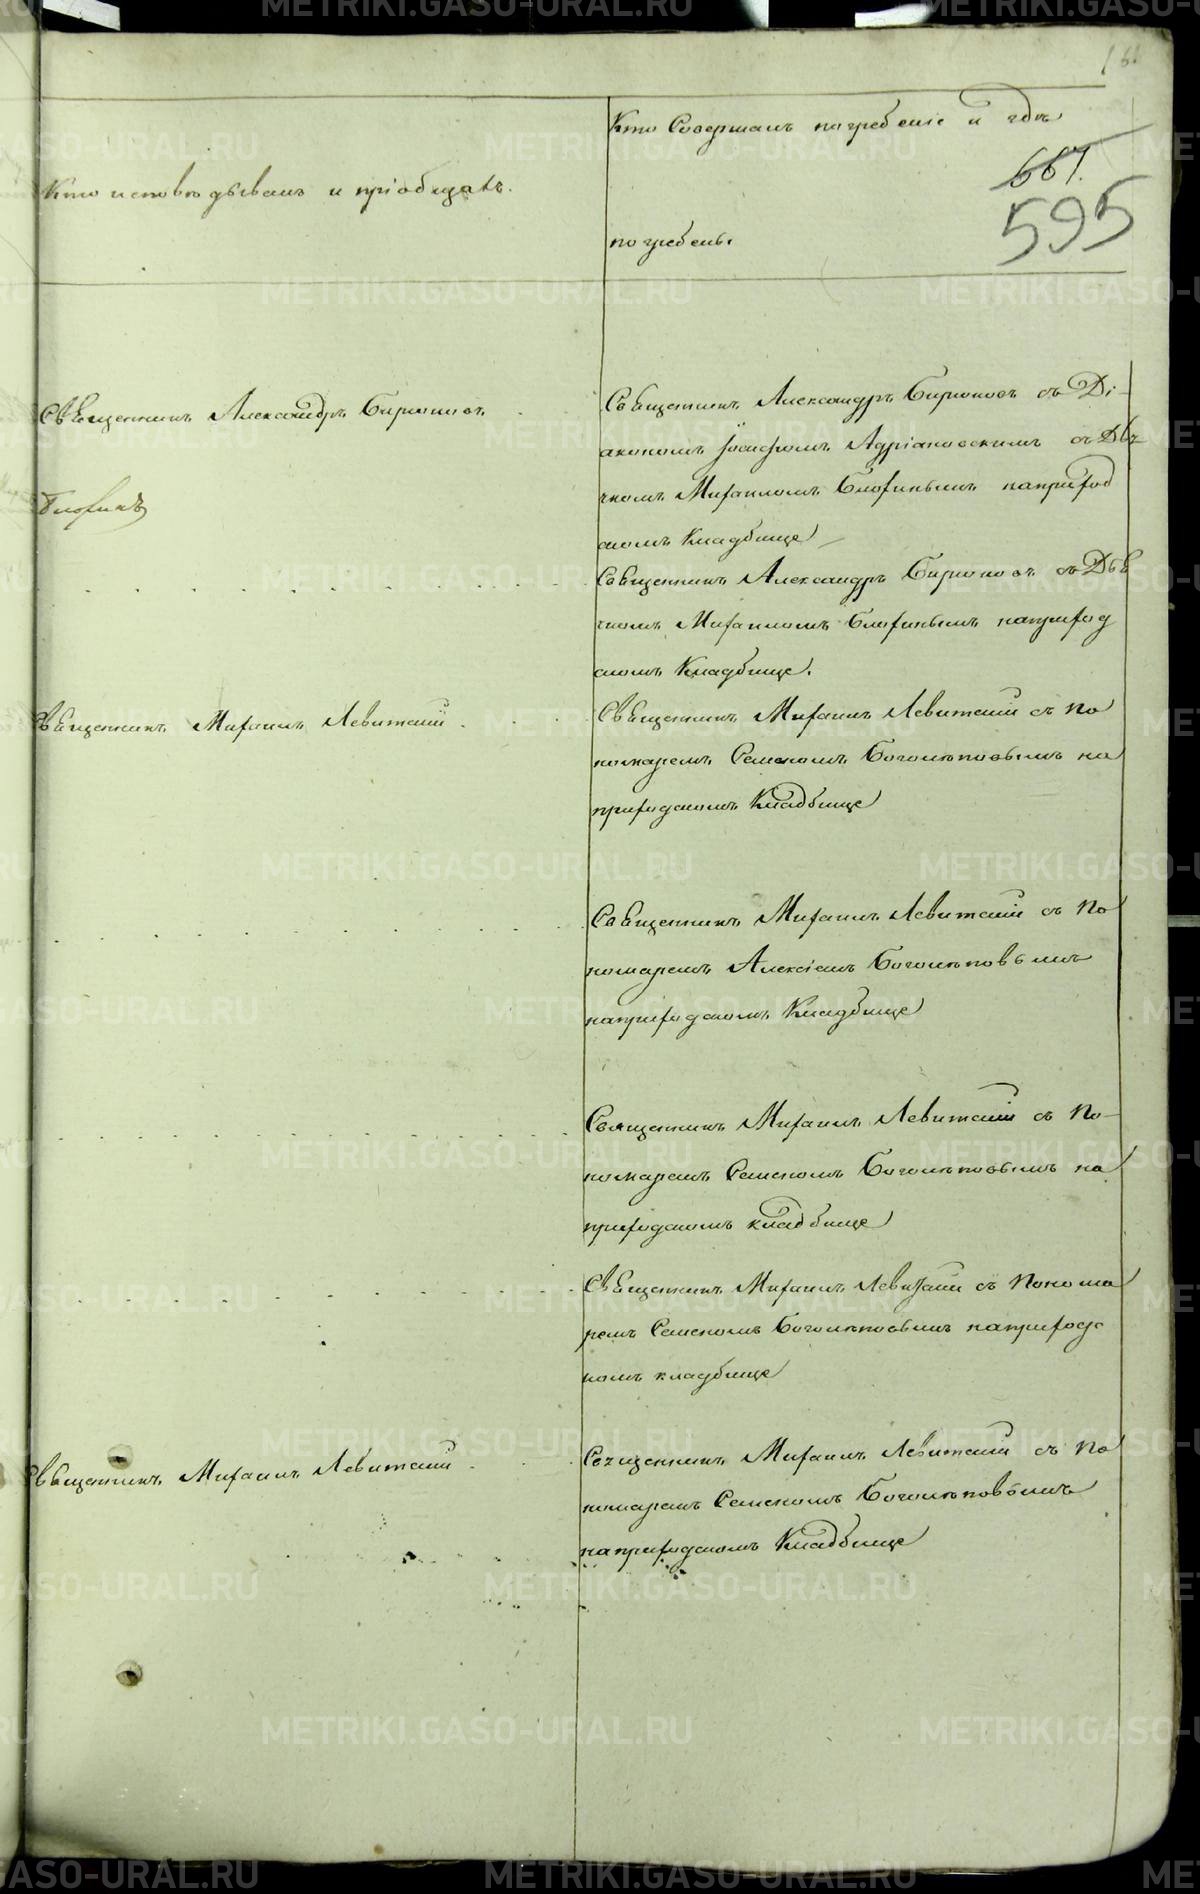 Кто исповѣдывалъ и пріобщалъ.
Кто Совершалъ погребеніе и гдѣ
погребенъ.
667.
595
Священникъ Александръ Бирюковъ
Священникъ Александръ Бирюковъ съ Ді-
акономъ Іосифомъ Адріановскимъ съ Дья
чкомъ Михаиломъ наприход
скомъ Кладбище
Священникъ Александръ Бирюковъ съ Дья
чкомъ Михаиломъ наприход
скомъ Кладбище.
Священникъ Михаилъ Левитскій
Священникъ Михаилъ Левитскій съ По
номаремъ Семеномъ Боголѣповымъ на
приходскомъ Кладбище
Священникъ Михаилъ Левитскій съ По
номаремъ Алексіемъ Боголѣповымъ
наприходскомъ Кладбище
Священникъ Михаилъ Левитскій съ По-
номаремъ Семеномъ Боголѣповымъ на
приходскомъ кладбище
Священникъ Михаилъ Левитскій съ Понома
ремъ Семеномъ Боголѣповымъ наприходс
комъ кладбище
Священникъ Михаилъ Левитскій
Священникъ Михаилъ Левитскій съ По
номаремъ Семеномъ Боголѣповымъ
наприходскомъ Кладбище
METRIKI.GASO-URAL.RU